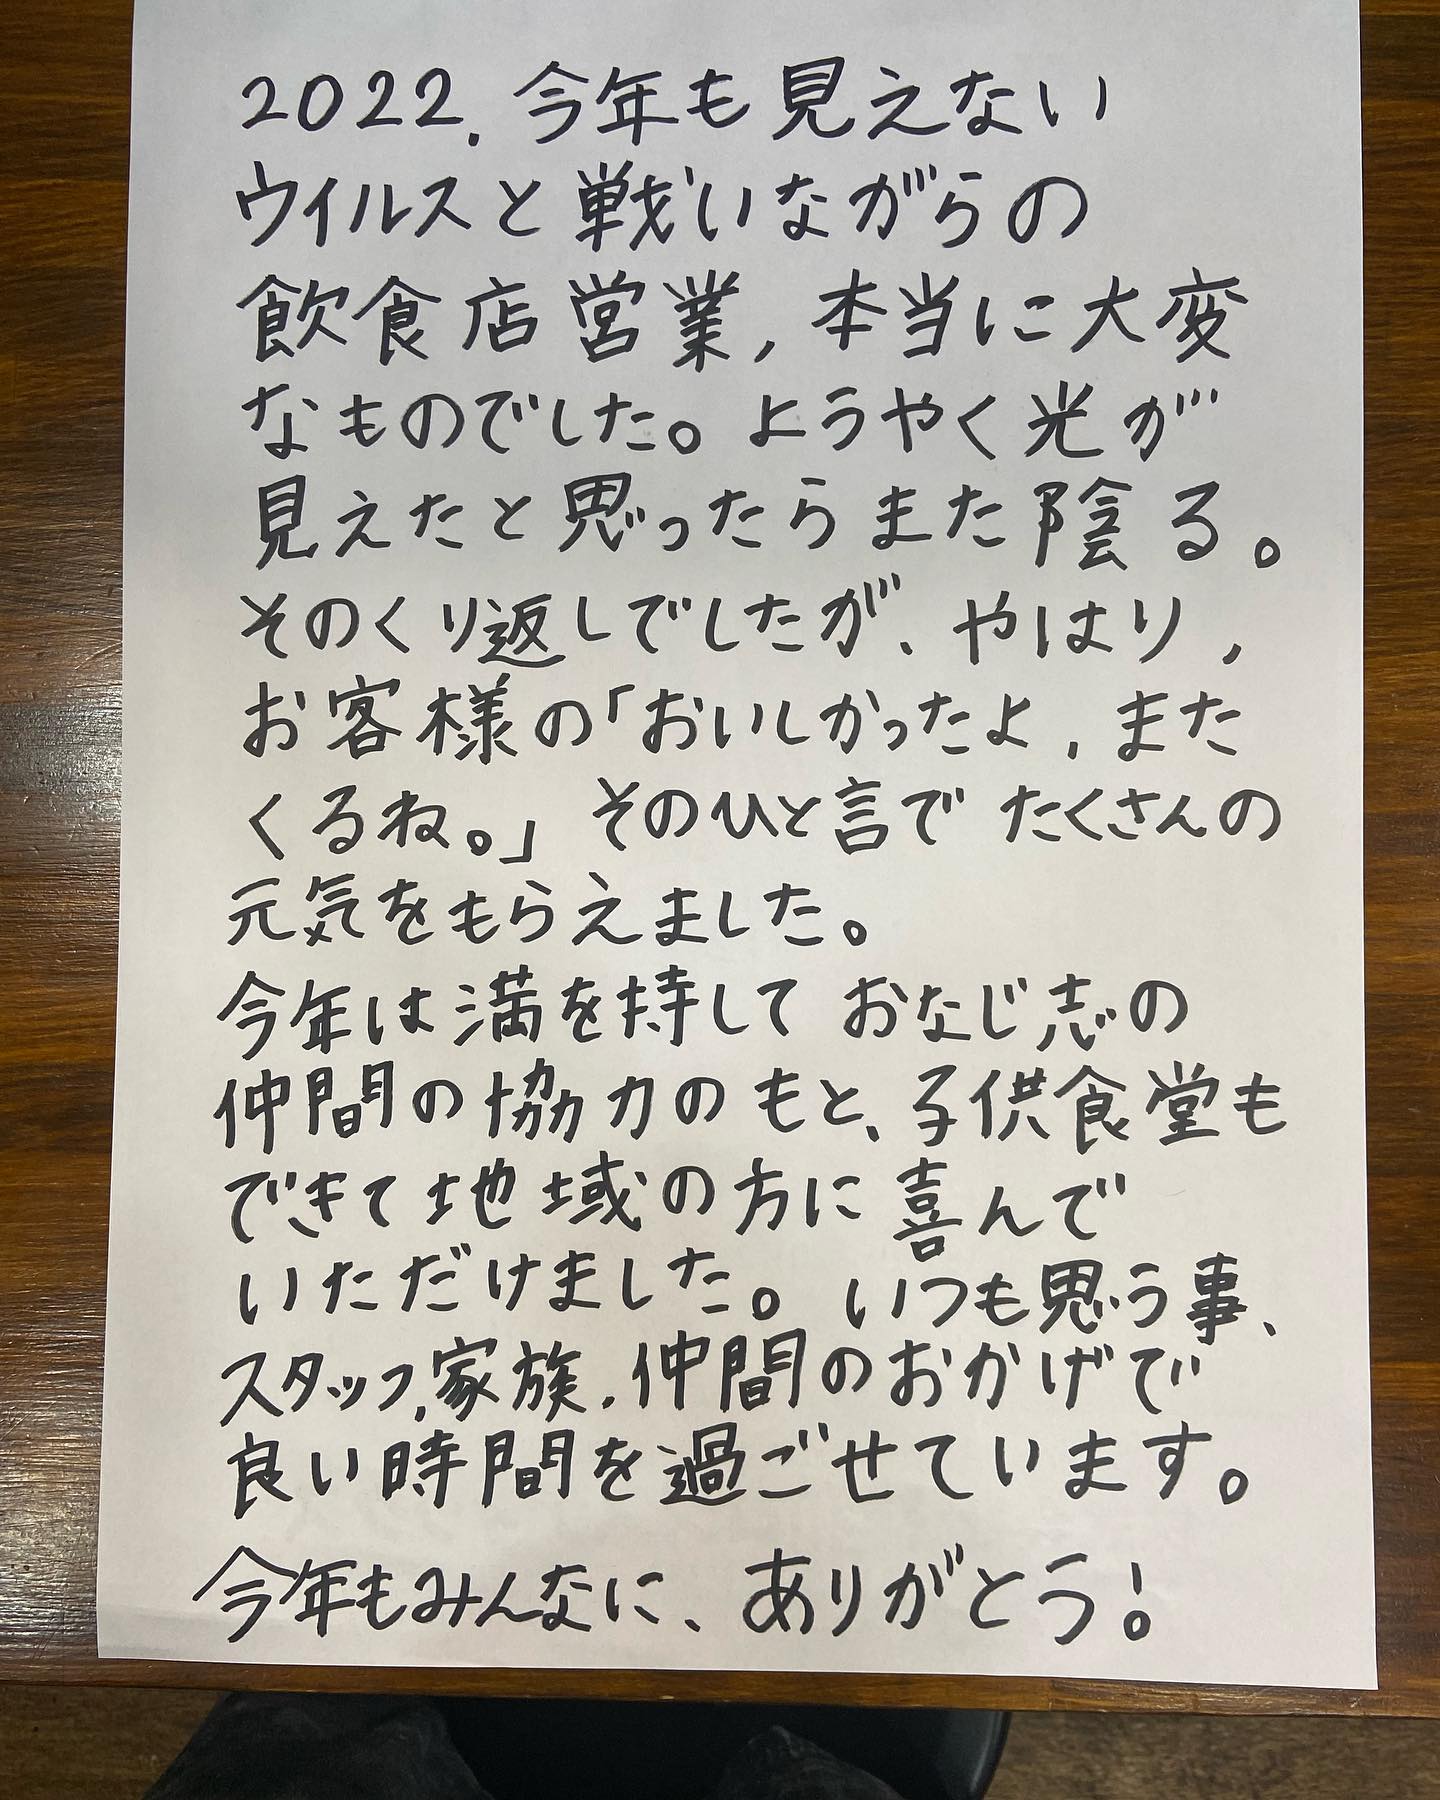 2022.今年も見えない
ウイルスと戦いながらの
飲食店営業,本当に大変
なものでした。ようやく光が
見えたと思ったらまた陰る。
そのくり返しでしたが、やはり,
お客様の「おいしかったよ,また
くるね。」そのひと言でたくさんの
元気をもらえました。
今年は満を持しておなじ志の
仲間の協力のもと、子供食堂も
できて地域の方に喜んで
いただけました。いつも思う事、
スタッフ,家族,仲間のおかげで
良い時間を過ごせています。
今年もみんなに、ありがとう!